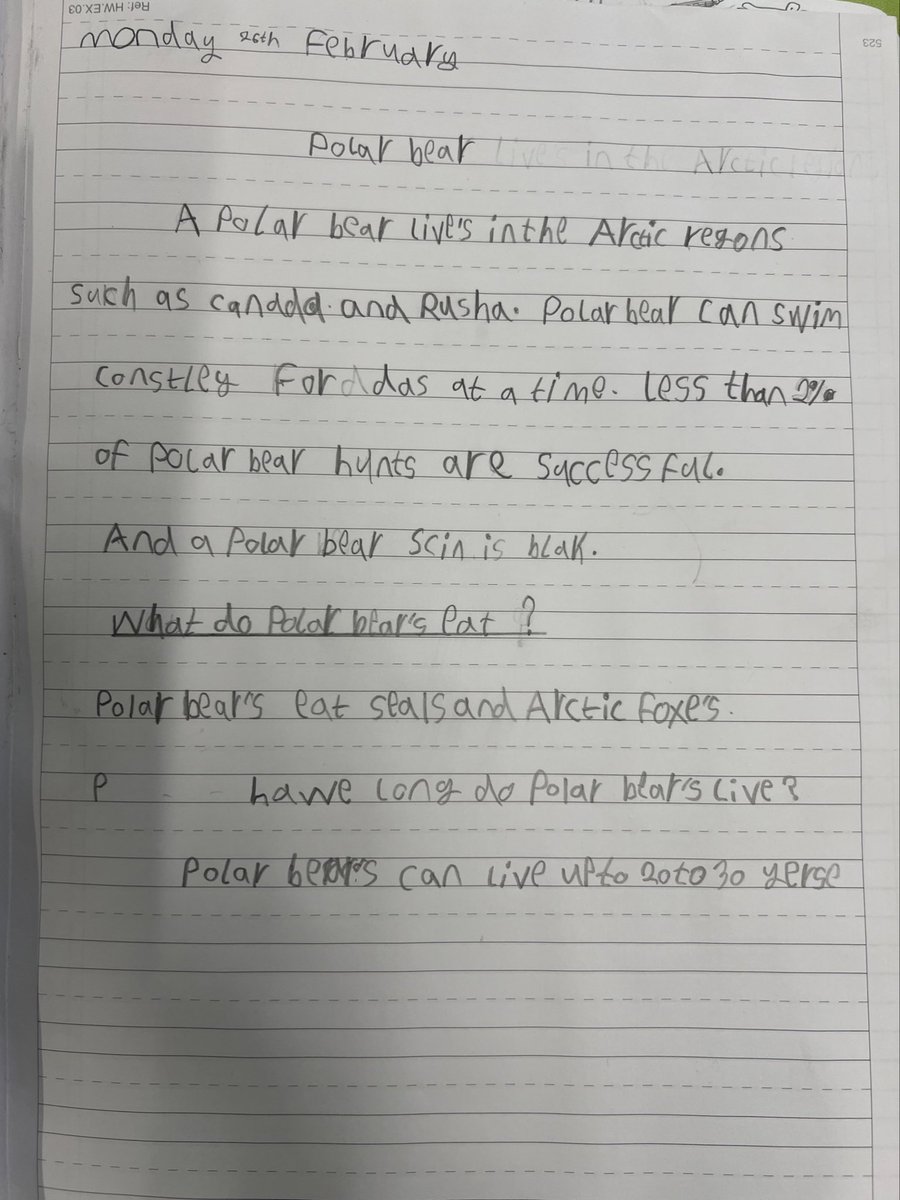 Ref: HW.EX.03
523
Monday 26th February
Polar bear lives in the Arctic
A Polar bear live's in the Arctic regons
such as canadda. and Rusha. Polar bear can swim
constley For das at a time. Less than 2%
of Polar bear hunts are successful.
And a Polar bear scin is blak.
What do Polar bear's eat ?
Polar bear's eat seals and Arctic Foxe's.
P hawe long do Polar bear's live?
Polar bear's can live up to 20 to 30 yerse